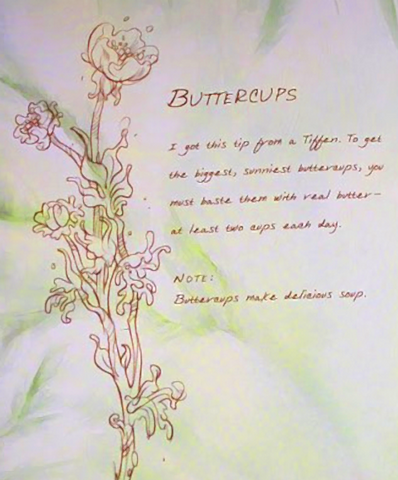 BUTTERCUPS
I got this tip from a Tiffen. To get
the biggest, sunniest buttercups, you
must baste them with real butter—
at least two cups each day.
NOTE:
Buttercups make delicious soup.